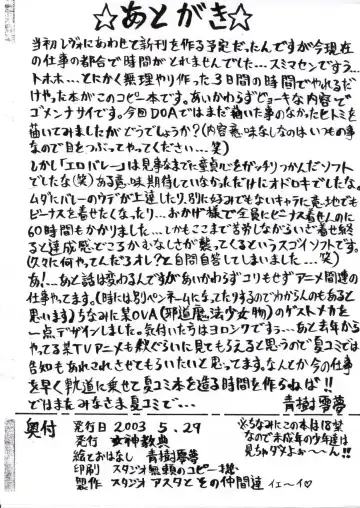 ☆あとがき☆
当初レヴォにあわせて新刊を作る予定だったんですが今現在
の仕事の都合で時間がとれませんでした…スミマセンですぅ…
トホホ…とにかく無理やり作った3日間の時間でやれるだ
けやった本がこのコピー本です。あいかわらずビョーキな内容で
ゴメンナサイです。今回DOAではまだ描いた事のなかったヒトミを
描いてみましたがどうでしょうか？(内容意味なしなのはいつもの事
なので目をつぶってやってください…笑)
しかし「エロバレー」は見事なまでに童貞心をガッチリつかんだソフト
でしたな(笑)ある意味期待していなかっただけにオドロキでしたな。
ムダにバレーのウデが上達したり、別に好みでもないキャラに意地でも
ビーナスを着せたくなったり…おかげ様で全員にビーナス着せんのに
60時間もかかりました…しかもここまで苦労しながらいざ着せ終え
ると達成感どころかむなしさが襲ってくるというスゴイソフトです。
(久々に何やってんだろオレ?と自問自答してしまいました…笑)
あ!…あと話は変わるんですがあいかわらずコリもせずアニメ関連の
仕事やってます。(時には別ペンネームになってたりするのでわからんのもあると
思います)ちなみに某OVA(邪道魔法少女物)のゲストメカを
一点デザインしました。気付いた方はヨロシクですぅ…あと去年から
やってる某TVアニメも秋ぐらいに見てもらえると思うので夏コミでは
告知もあれこれさせてもらいたいと思ってます。なんとか今の仕事
を早く軌道に乗せて夏コミ本を造る時間を作らねば!!
ではまたみなさま夏コミで…
青樹零夢
奥付
発行日 2003 5.29
発行 女神教典
絵とおはなし 青樹零夢
印刷 スタジオ無頼のコピー機
製作 スタジオアスタとその仲間達 イェ〜イ♡
※ちなみにこの本は18禁
なので未成年の少年達は
見ちゃダメよぉ〜ん!!